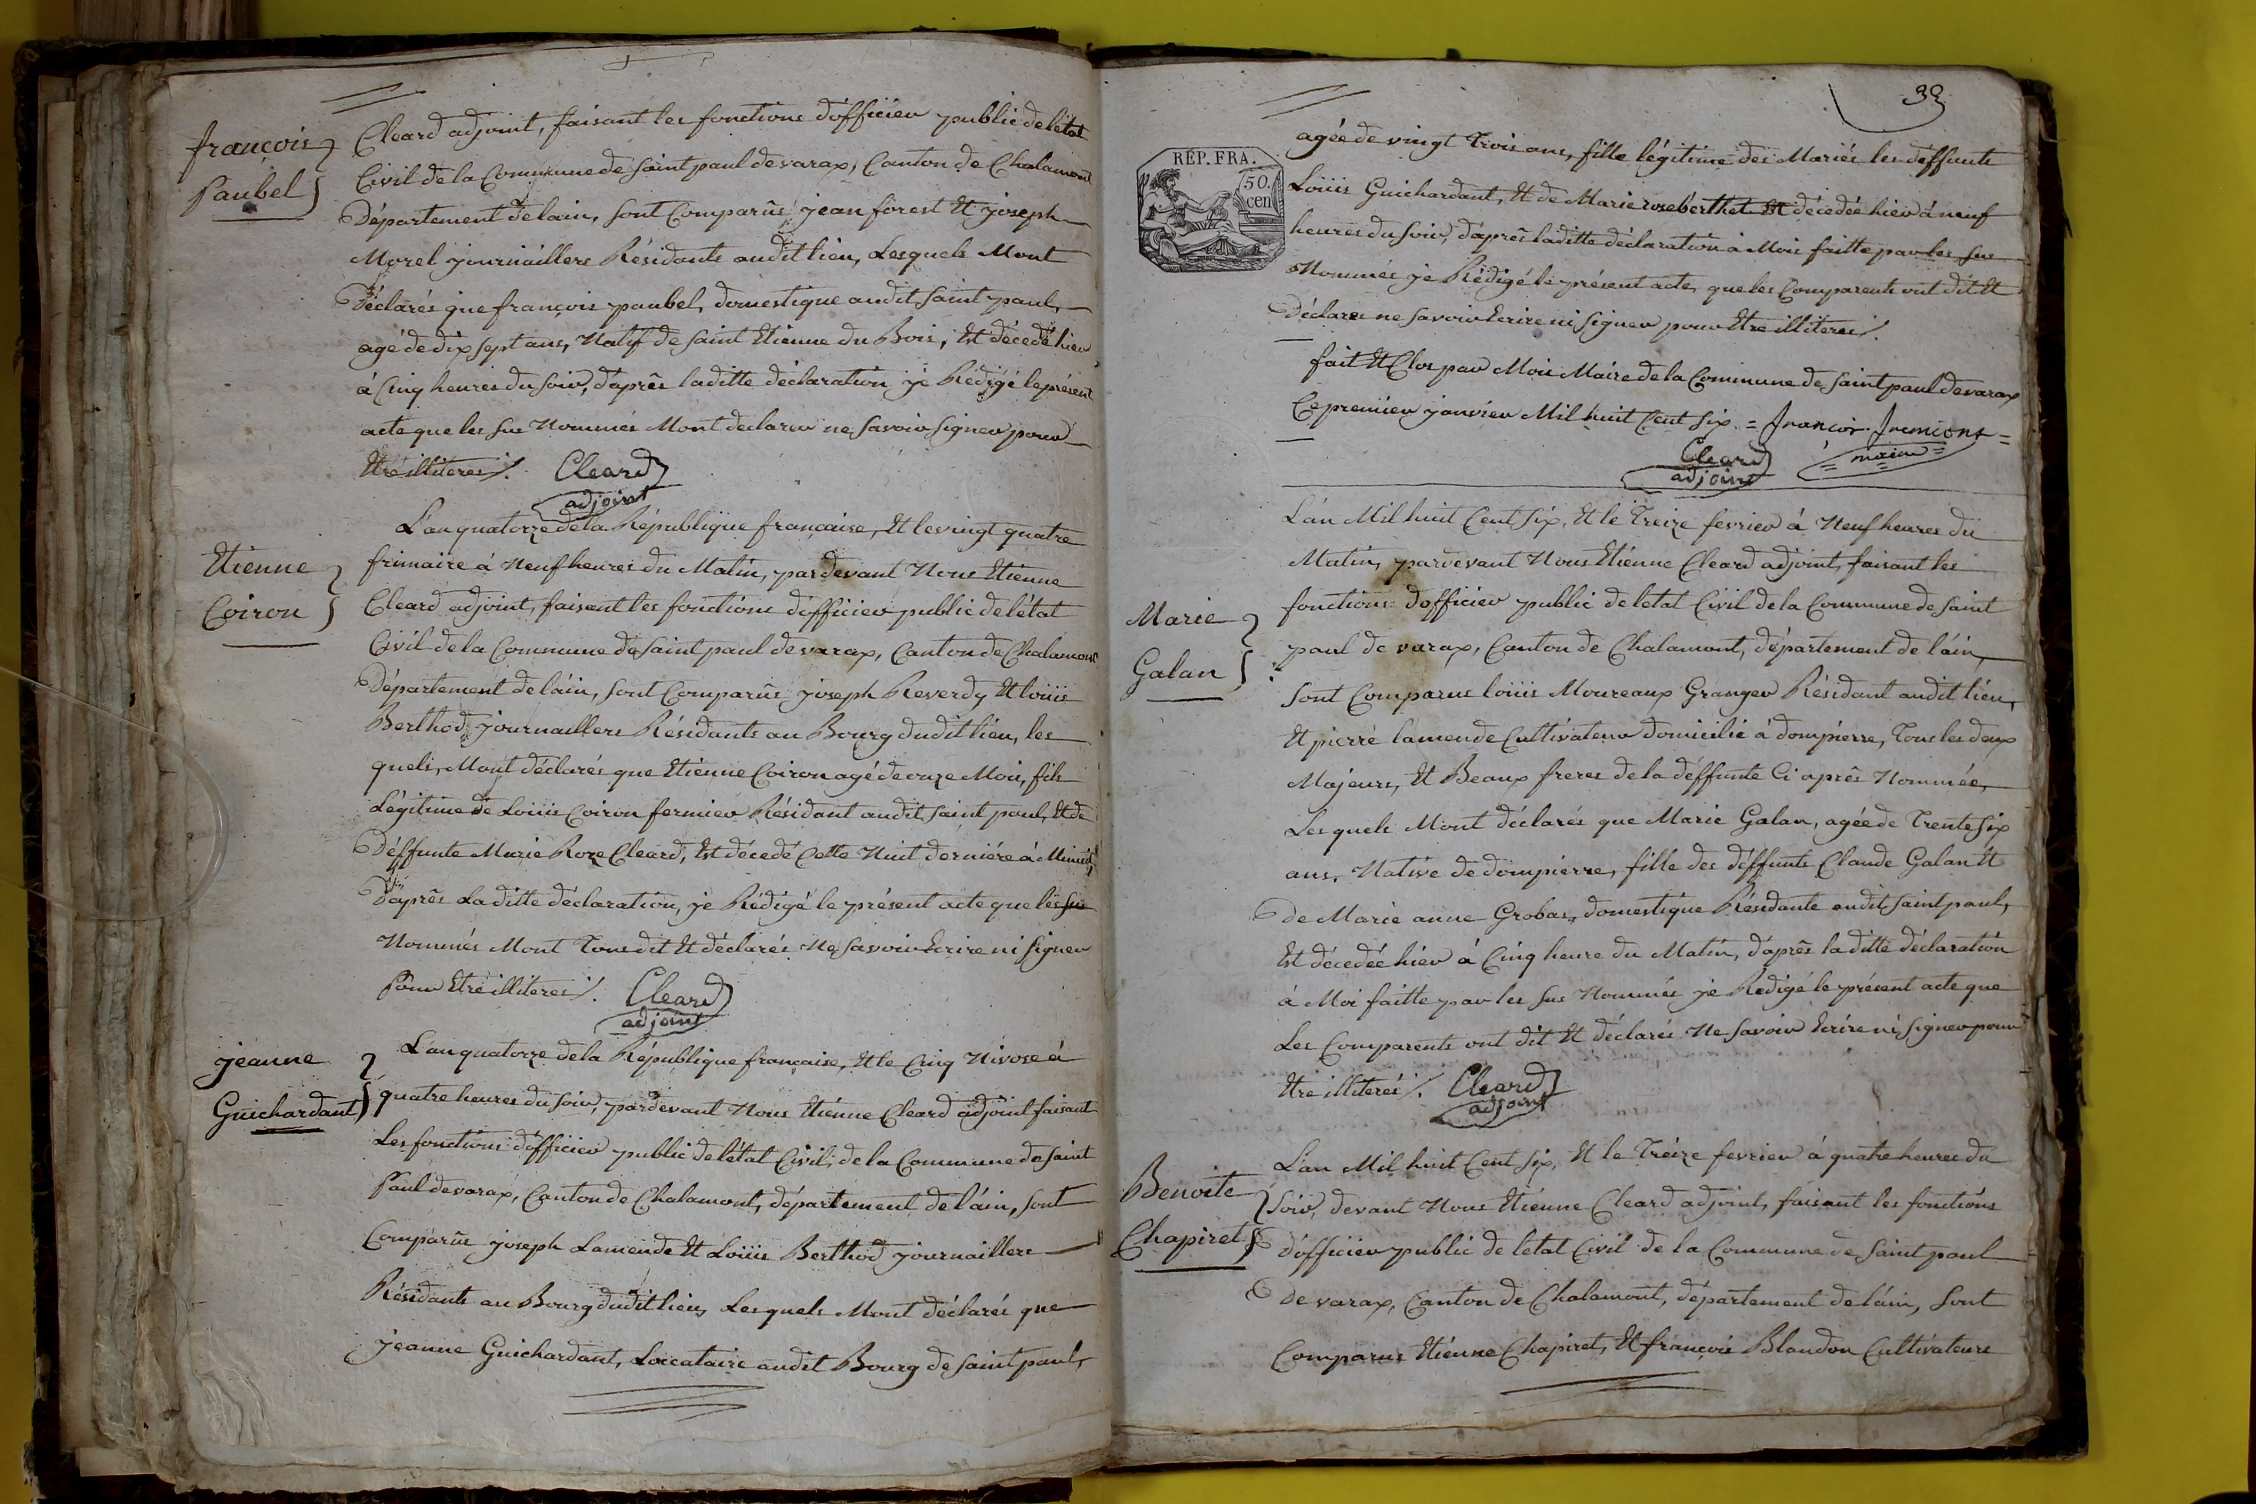 françois
Paubel
Cleard adjoint, faisant les fonctions d'officier public de l'état
Civil de la Commune de Saint paul de varax, Canton de Chalamont
Département de lain, sont Comparûs jean forest Et joseph
Morel journaillers Résidants audit lieu, Lesquels Mont
Déclarés que françois paubel, domestique audit saint paul,
agé de dix sept ans, Natif de saint Etienne du Bois, Est décedé hier
à Cinq heures du soir, d'après laditte déclaration je Rédigé le présent
acte que les sus Nommés Mont declarer ne savoir signer pour
Etre illiteres /. Cleard
adjoint
Etienne
Coiron
L'an quatorze de la République française, Et le vingt quatre
frimaire à Neuf heures du Matin, pardevant Nous Etienne
Cleard adjoint, faisant les fonctions d'officier public de l'état
Civil de la Commune de Saint paul de varax, Canton de Chalamont
Département de láin, sont Comparûs joseph Reverdy Et loüis
Berthod journaillers Résidants au Bourg dudit lieu, les
quels, Mont déclarés que Etienne Coiron agé de onze Mois, fils
Légitime de Loüis Coiron fermier Résidant audit saint paul, Et de
Déffunte Marie Roze Cleard, Est décedé Cette Nuit derniére à Minuit,
D'après Laditte déclaration, je Rédigé le présent acte que les sus
Nommés Mont Tous dit Et déclarés Ne savoir Ecrire ni signer
Pour Etre illiteres /. Cleard
adjoint
jeanne
Guichardant
L'an quatorze de la République française, Et le Cinq Nivose à
quatre heures du soir, pardevant Nous Etienne Cleard adjoint faisant
Les fonctions d'officier public de l'état Civil, de la Commune de saint
Paul de varax, Canton de Chalamont, département de láin, sont
Comparûs joseph Lamende Et Loüis Berthod journaillers
Résidants au Bourg dudit lieu, Lesquels Mont déclarés que
jeanne Guichardant, Loccataire audit Bourg de saint paul,
REP. FRA.
50.
cen
agée de vingt Trois ans, fille légitime des Mariés les déffunts
Loüis Guichardant, Et de Marie roze berthet Est décedée hier à neuf
heures du soir, d'après laditte déclaration à Moi faitte par les sus
Nommés je Rédigé le présent acte, que les Comparents ont dit Et
Déclarer ne savoir Ecrire ni signer pour Etre illiteres /.
fait Et Clos par Moi Maire de la Commune de Saint paul de varax
Ce premier janvier Mil huit Cent six. =
Cleard
adjoint
maire
Marie
Galan
L'an Mil huit Cent six, Et le Treize fevrier à Neuf heures du
Matin, pardevant Nous Etienne Cleard adjoint, faisant les
fonctions d'officier public de letat Civil de la Commune de saint
paul de varax, Canton de Chalamont, département de láin,
sont Comparus loüis Moureaux Granger Résidant audit lieu,
Et pierre lamende Cultivateur domicilié à dompierre, Tous les deux
Majeurs, Et Beaux freres de la déffunte Ci après Nommée,
Lesquels Mont déclarés que Marie Galan, agée de Trente six
ans, Native de dompierre, fille des déffunts Claude Galan Et
de Marie anne Grobas, domestique Résidante audit saint paul,
Est décedée hier à Cinq heure du Matin, d'après laditte déclaration
à Moi faitte par les sus Nommés je Redigé le présent acte que
Les Comparents ont dit Et déclarés Ne savoir Ecrire ni signer pour
Etre illiterés /. Cleard
adjoint
Benoite
Chapiret
L'an Mil huit Cent six, Et le Treize fevrier à quatre heures du
soir, devant Nous Etienne Cleard adjoint, faisant les fonctions
d'officier public de letat Civil de la Commune de saint paul
de varax, Canton de Chalamont, département de láin, sont
Comparus Etienne Chapiret, Et françois Blandon Cultivateurs